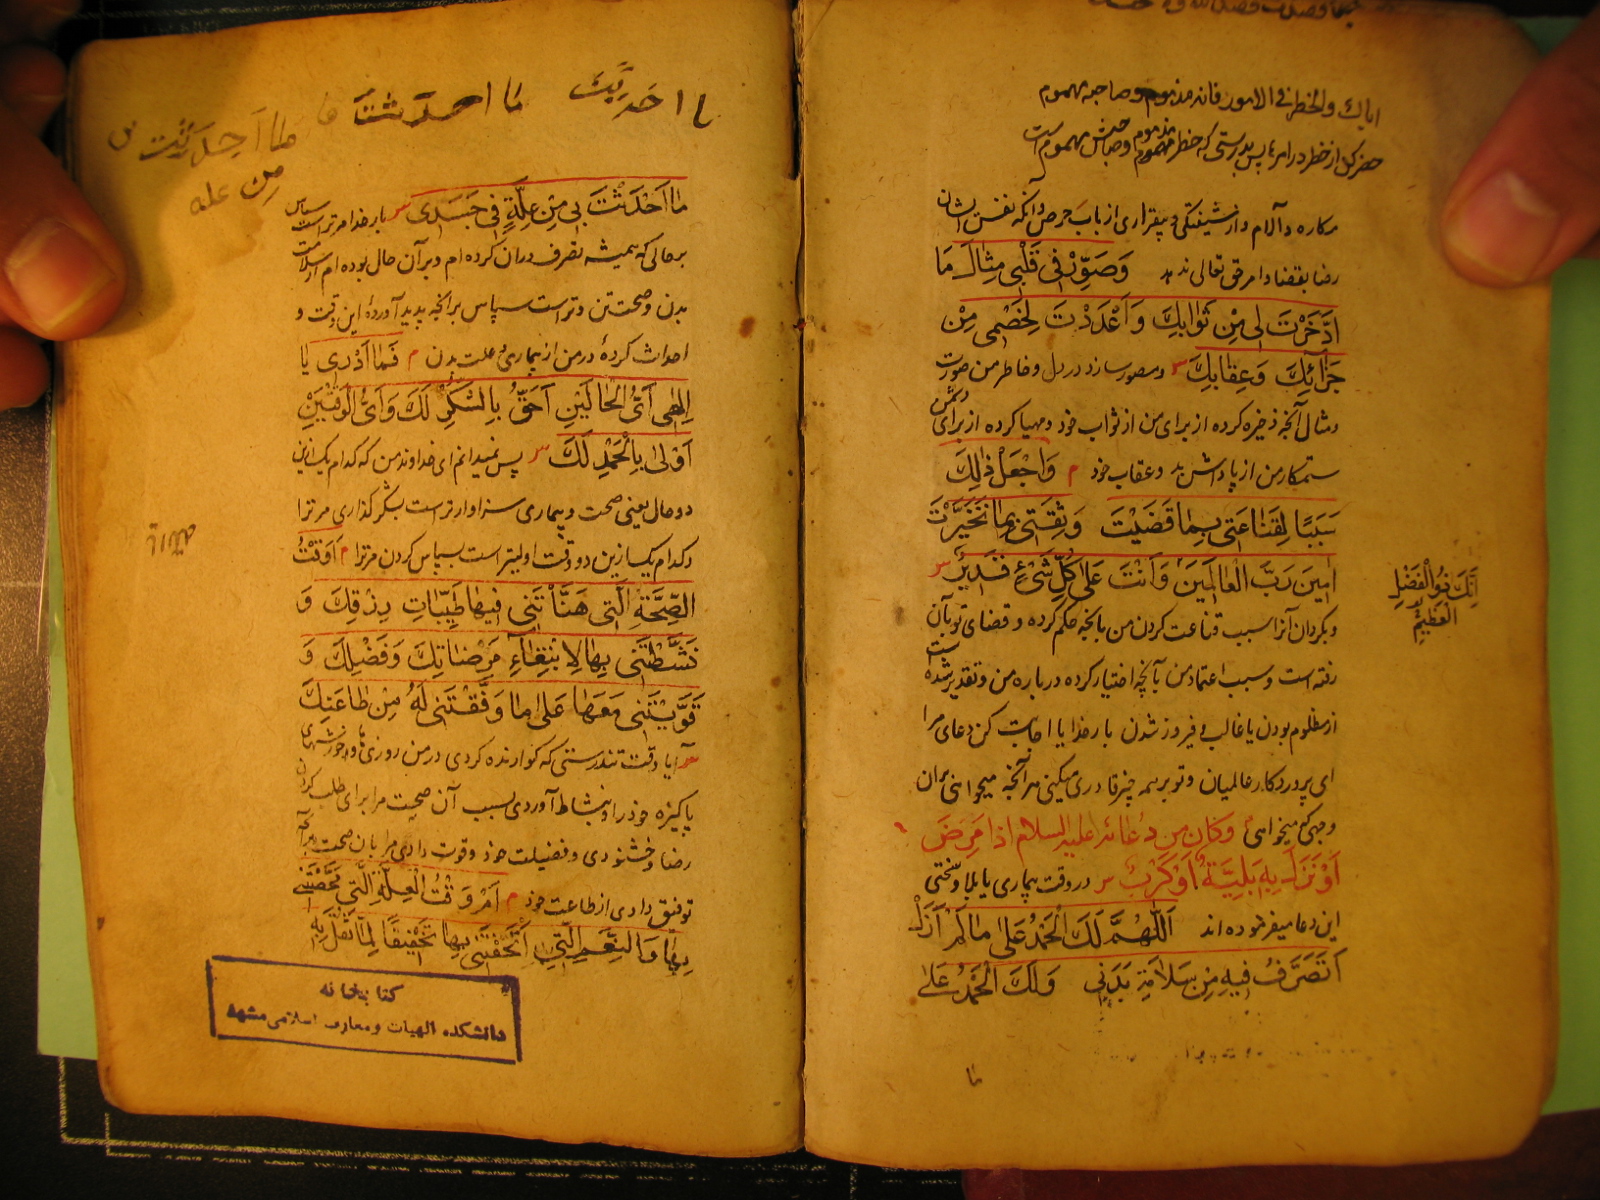 اياك والخطر في الامور فانه مذموم وصاحبه مهموم
حذر كن از خطر در امرها پس بدرستی که خطر مذموم وصاحبش مهموم است
مکاره و آلام و از شیفتگی و بیقراری ارباب حرص و آنکه نفس ایشان
رضا بقضا و امر حق تعالی ندهد وَصَوِّرْ فِي قَلْبِي مِثَالَ مَا
ادَّخَرْتَ لِي مِنْ ثَوَابِكَ وَاَعْدَدْتَ لِخَصْمِي مِنْ
جَزَائِكَ وَعِقَابِكَ و مصور ساز در دل و خاطر من صورت
و مثال آنچه ذخیره کرده از برای من از ثواب خود و مهیا کرده از برای دشمن
ستمکار من از پاداش بد و عقاب خود م وَاجْعَلْ ذٰلِكَ
سَبَبًا لِقَنَاعَتِي بِمَا قَضَيْتَ وَثِقَتِي بِمَا تَخَيَّرْتَ
اٰمِينَ رَبَّ الْعَالَمِينَ وَاَنْتَ عَلٰى كُلِّ شَيْءٍ قَدِيرٌ
اِنَّكَ ذُو الْفَضْلِ
الْعَظِيمِ
و بگردان آنرا سبب قناعت کردن من بانچه حکم کرده و قضای تو بآن
رفته است و سبب اعتماد من بآنچه اختیار کرده درباره من و تقدیر شده است
از مظلوم بودن یا غالب و فیروز شدن بار خدایا اجابت کن دعای مرا
ای پروردگار عالمیان و تو بر همه چیز قادری میکنی هر آنچه میخواهی بر آن
وجهی که میخواهی وَكَانَ مِنْ دُعَائِهِ عليه السلام اِذَا مَرِضَ
اَوْ نَزَلَ بِهِ بَلِيَّةٌ اَوْ كَرْبٌ در وقت بیماری یا بلا و سختی
این دعا میفرموده اند اَللّٰهُمَّ لَكَ الْحَمْدُ عَلٰى مَا لَمْ اَزَلْ
اَتَصَرَّفُ فِيهِ مِنْ سَلَامَةِ بَدَنِي وَلَكَ الْحَمْدُ عَلٰى
ما
ما احدثت ما احدثت
ما احدثت
من عله
مَا اَحْدَثْتَ بِي مِنْ عِلَّةٍ فِي جَسَدِي بار خدا مر تراست سپاس
بر حالی که همیشه تصرف در آن کرده ام و بر آن حال بوده ام از سلامت
بدن و صحت تن و تراست سپاس بر آنچه پدید آوردۀ این وقت و
احداث کردۀ در من از بیماری و علت بدن م فَمَا اَدْرِي يَا
اِلٰهِي اَيُّ الْحَالَيْنِ اَحَقُّ بِالشُّكْرِ لَكَ وَاَيُّ الْوَقْتَيْنِ
اَوْلٰى بِالْحَمْدِ لَكَ پس نمیدانم ای خداوند من که کدام یک ازین
دو حال یعنی صحت و بیماری سزاوارتر است بشکر گذاری مر ترا
و کدام یک ازین دو وقت اولیتر است بسپاس کردن مر ترا م اَوَقْتُ
الصِّحَّةِ الَّتِي هَنَّأْتَنِي فِيهَا طَيِّبَاتِ رِزْقِكَ وَ
نَشَّطْتَنِي بِهَا لِابْتِغَاءِ مَرْضَاتِكَ وَفَضْلِكَ وَ
قَوَّيْتَنِي مَعَهَا عَلٰى مَا وَفَّقْتَنِي لَهُ مِنْ طَاعَتِكَ
آیا وقت تندرستی که گوارنده کردی در من روزیها و خورشهای
پاکیزه خود را و نشاط آوردی بسبب آن صحت مرا برای طلب کردن
رضا و خشنودی و فضیلت خود و قوت دادی مرا بان صحت بر آنچه
توفیق دادی از طاعت خود م اَمْ وَقْتُ الْعِلَّةِ الَّتِي مَحَّصْتَنِي
بِهَا وَالنِّعَمِ الَّتِي اَتْحَفْتَنِي بِهَا تَخْفِيفًا لِمَا ثَقُلَ بِهِ
کتابخانه
دانشکده الهیات و معارف اسلامی مشهد